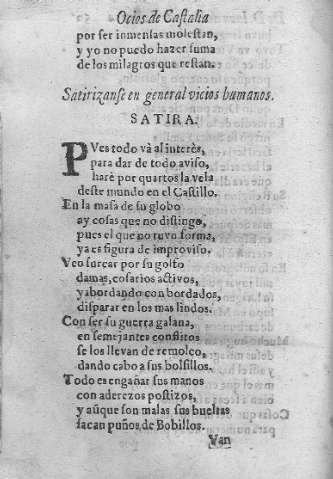 Ocios de Castalia
por ser inmensas molestan,
y yo no puedo hazer suma
de los milagros que restan.
Satirizanse en general vicios humanos.
SATIRA.
PVes todo và al interès,
para dar de todo aviso,
harè por quartos la vela
deste mundo en el Castillo.
En la masa de su globo
ay cosas que no distingo,
pues el que no tuvo forma,
ya es figura de improviso.
Veo surcar por su golfo
damas, cosarios activos,
y abordando con bordados,
disparar en los mas lindos.
Con ser su guerra galana,
en semejantes conflitos
se los llevan de remolco,
dando cabo a sus bolsillos.
Todo es engañar sus manos
con aderezos postizos,
y aũque son malas sus bueltas
sacan puños de Bobillos.
Van